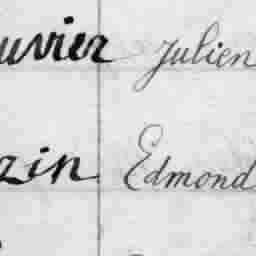 uvier Julien
zin Edmond